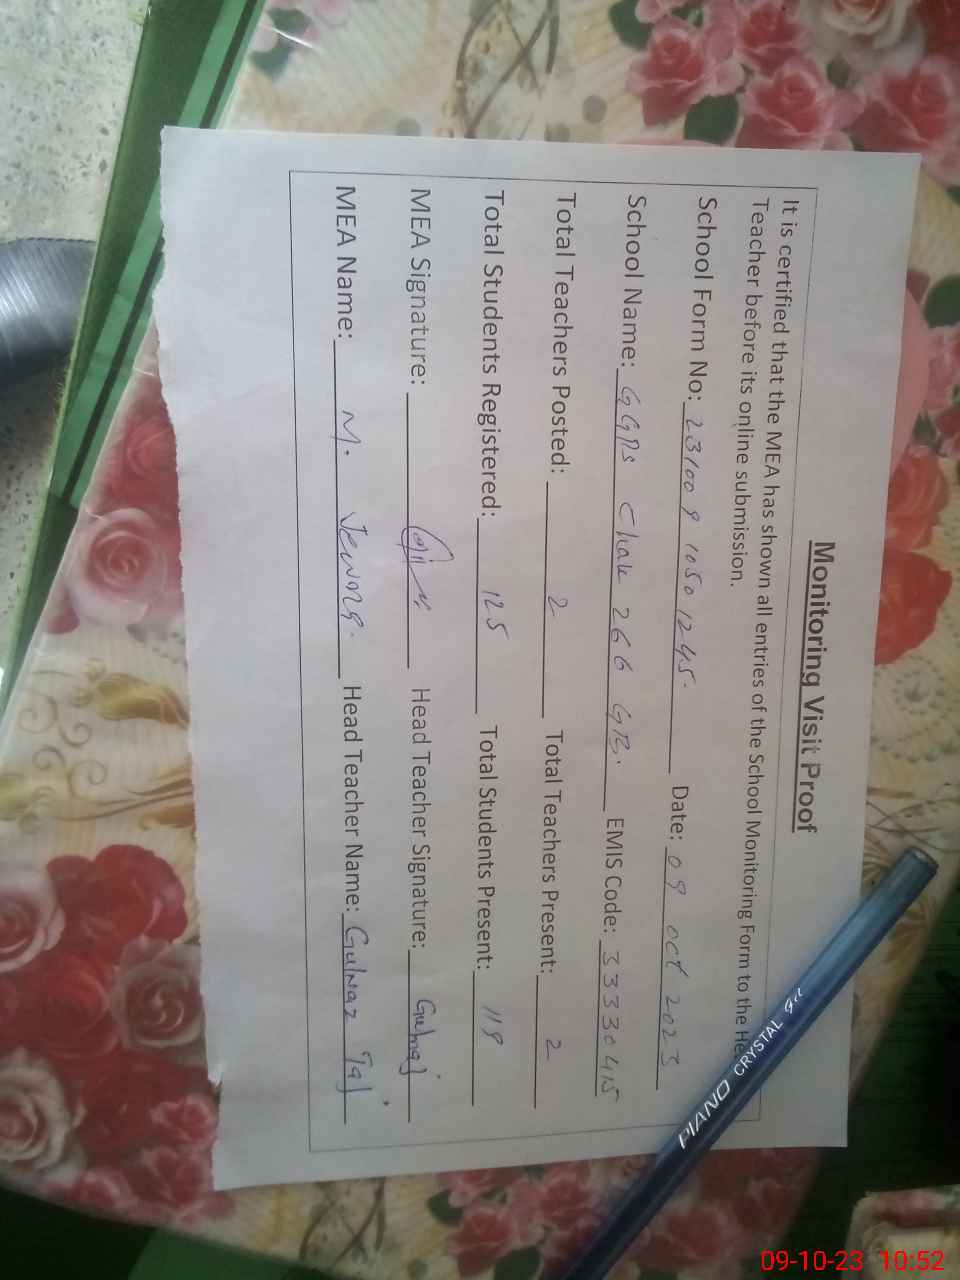 Monitoring Visit Proof
It is certified that the MEA has shown all entries of the School Monitoring Form to the He
Teacher before its online submission.
School Form No: 231009 1050 1245. Date: 09 oct 2023
School Name: GGPS Chak 266 GB. EMIS Code: 33330415
Total Teachers Posted: 2 Total Teachers Present: 2
Total Students Registered: 125 Total Students Present:
MEA Signature: Head Teacher Signature: Gulnaz
MEA Name: M. Head Teacher Name: Gulnaz Taj
PIANO CRYSTAL
09-10-23 10:52